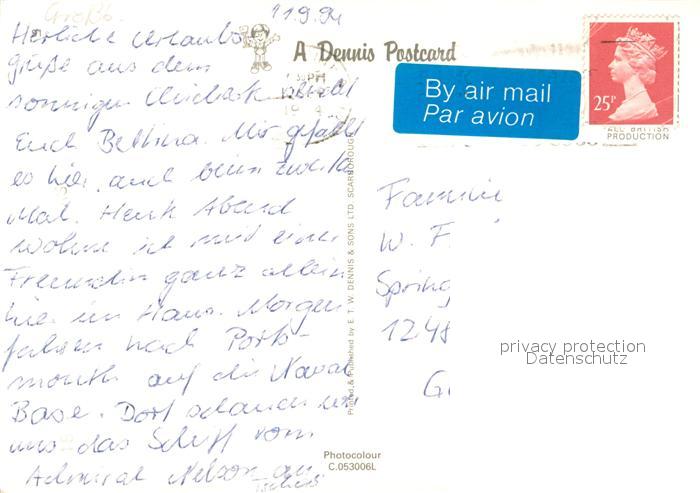 Großb.
11.9.94
Herzliche Urlaubs
grüße aus dem
sonnigen schickt
Euch Bettina. Mir gefällt
es hier auch beim zweiten
Mal. Heute Abend
wohne ich mit einer
Freundin ganz allein
hier im Haus. Morgen
fahren nach Ports-
mouth auf die Naval
Base. Dort schauen wir
uns das Schiff vom
Admiral Nelson an
Tschüß
A Dennis Postcard
By air mail
Par avion
25P
ALL BRITISH
PRODUCTION
Printed & Published by E. T. W. DENNIS & SONS LTD. SCARBOROUGH
Familie
W. F
Spring
1248
G
privacy protection
Datenschutz
Photocolour
C.053006L